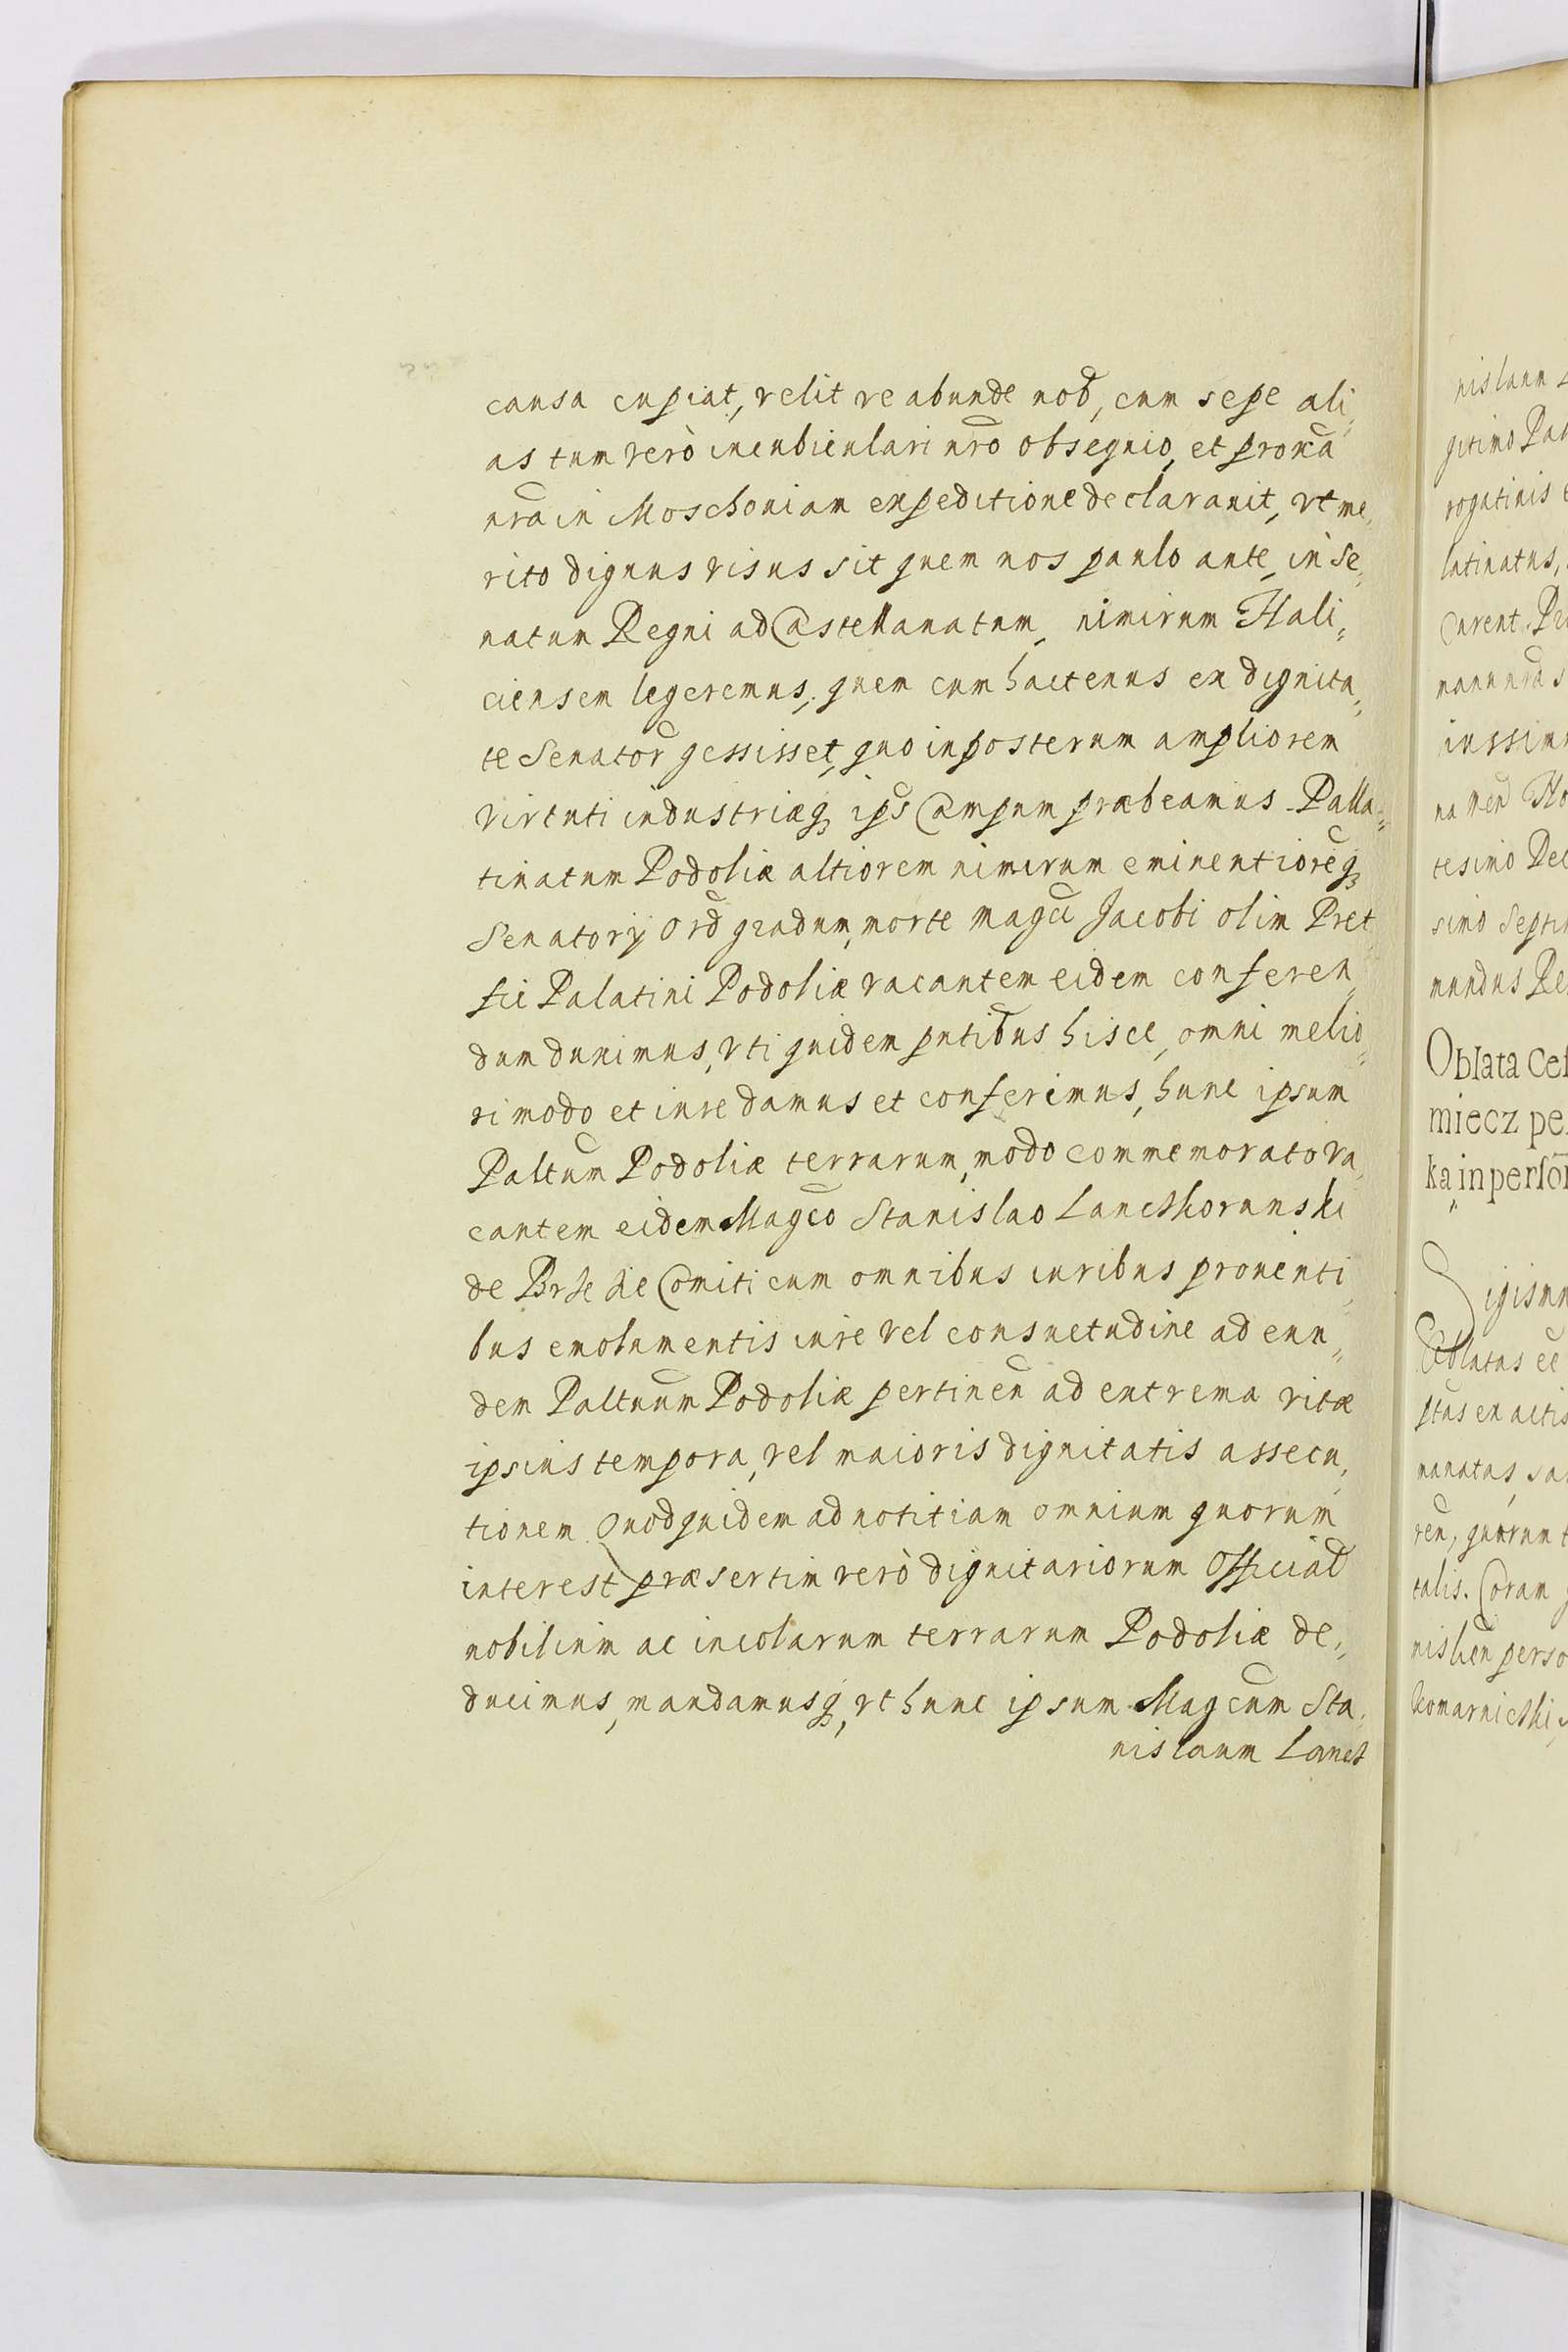 causa cupiat, velit re abunde nob, cum sepe ali„
as tum verò in cubiculari nro obsequio, et proxa
nra in Moschouiam expeditione declarauit, vt me„
rito dignus visus sit quem nos paulo ante, in Se„
natum Regni ad Castellanatum, nimirum Hali„
ciensem legeremus, quem cum hactenus ex dignita„
te Senator gessisset, quo inposterum ampliorem
virtuti industriæq ips Campum præbeamus Palla„
tinatum Podoliæ altiorem nimirum eminentioreq
Senatorij Ord gradum, morte magci Jacobi olim Pret
fic Palatini Podoliæ vacantem eidem conferen„
dum duximus, vti quidem pntibus hisce, omni melio„
ri modo et iure damus et conferimus, hunc ipsum
Paltum Podoliæ terrarum, modo commemorato va„
cantem eidem Magco Stanislao Lancthorunski
de Brzezie Comiti cum omnibus iuribus prouenti„
bus emolumentis iure vel consuetudine ad eun„
dem Paltuum Podoliæ pertinen ad extrema vitæ
ipsius tempora, vel maioris dignitatis assecu„
tionem Quod quidem ad notitiam omnium quorum
interest præsertim verò dignitariorum Official
nobilium ac incolarum terrarum Podoliæ de„
ducimus, mandamusq, vt hunc ipsum Magcum Sta„
nislaum Lanct
nislaum
gitimo Pal
rogatiuis
latinatus,
Curent.
manu nra s
iussim
na men
tesimo Dec
simo Septi
mundus Re
Oblata
miecz pe
ka in perso
Sigismu
Oblatas ee
ptas ex actis
manatas, sa
ren, quarum t
talis. Coram
perso
Komarnicki,